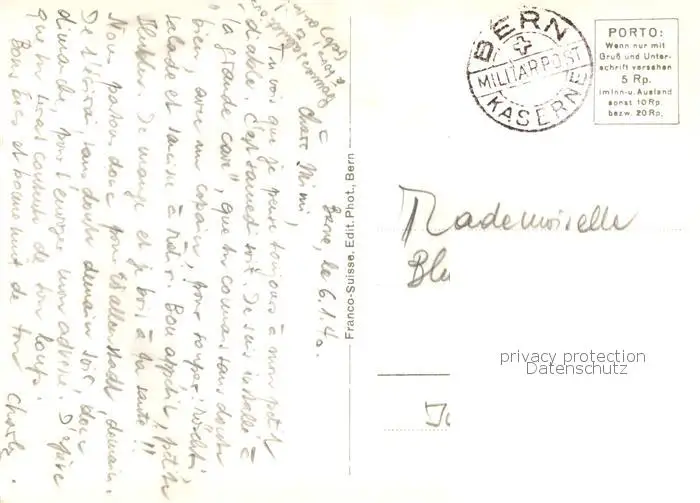 Berne, le 6.1.40.
Chère Mimi,
Tu vois que je pense toujours à mon petit
diable. C'est samedi soir. Je suis installé à
"la grande cave", que tu connais sans doute
bien, avec un copain, pour souper: Röschti
salade et saucisse à rôtir. Bon appétit, petite
Je mange et je bois à ta santé!!
Nous partons donc pour Wallenstadt, demain.
Je t'écrirai, sans doute demain soir, donc
dimanche, pour t'envoyer mon adresse. J'espère
que tu seras contente de ton loup.
Bons becs et bonne nuit de ton
Charly.
Franco-Suisse. Edit. Phot., Bern
BERN
MILITÄRPOST
KASERNE
PORTO:
Wenn nur mit
Gruß und Unter-
schrift versehen
5 Rp.
im Inn-u. Ausland
sonst 10 Rp.
bezw. 20 Rp.
Mademoiselle
privacy protection
Datenschutz